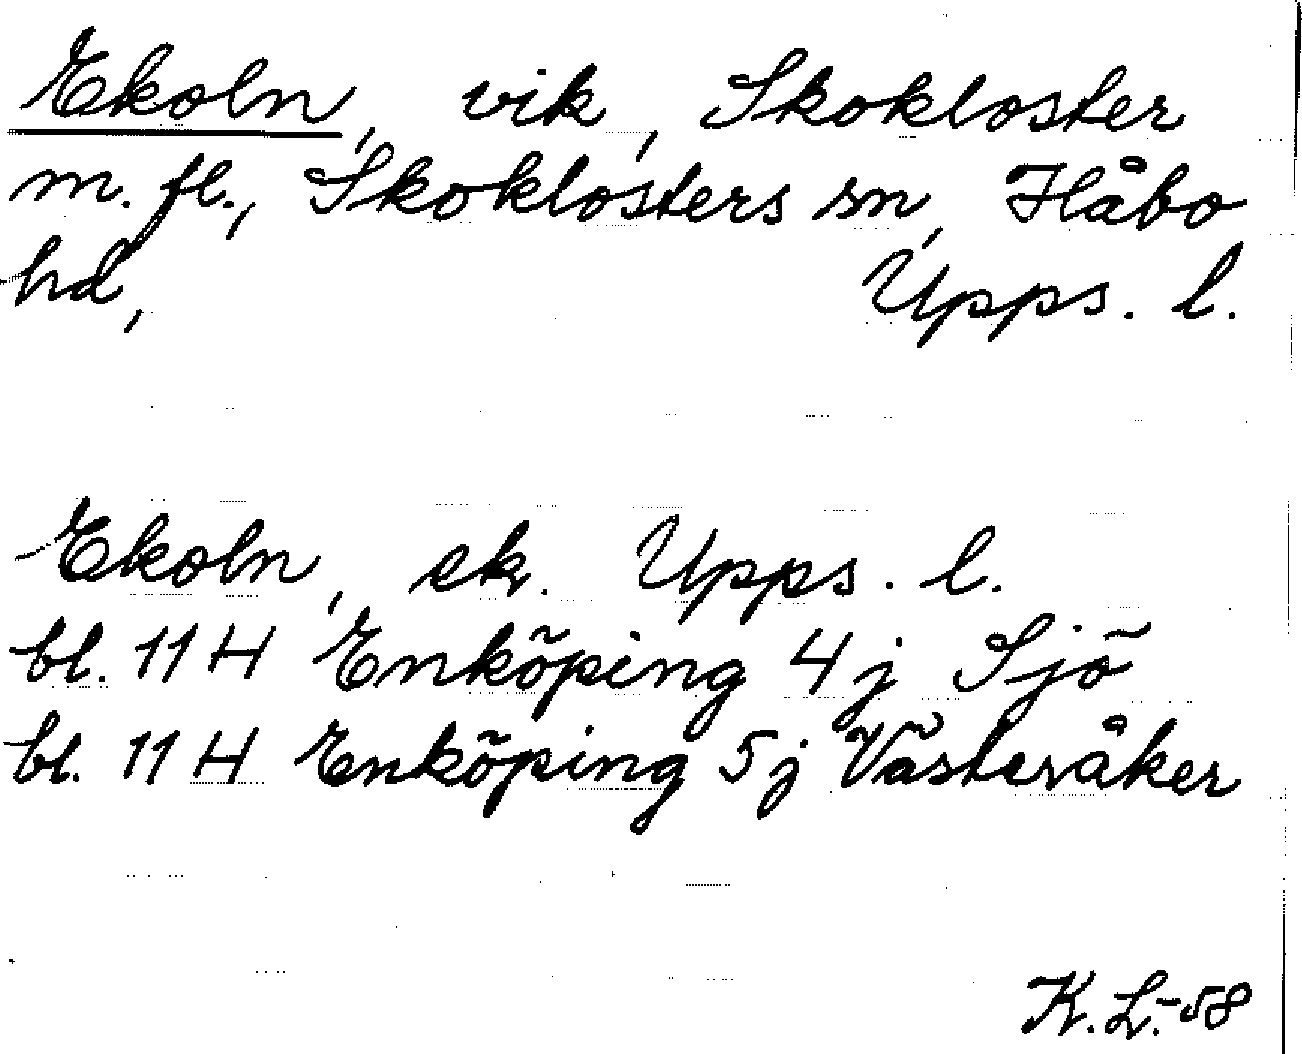 Ekoln, vik, Skokloster
m. fl., Skoklosters sn, Håbo
hd, Upps. l.
Ekoln, ek. Upps. l.
bl. 11 H Enköping 4 j Sjö
bl. 11 H Enköping 5 j Västeråker
K. L.-58